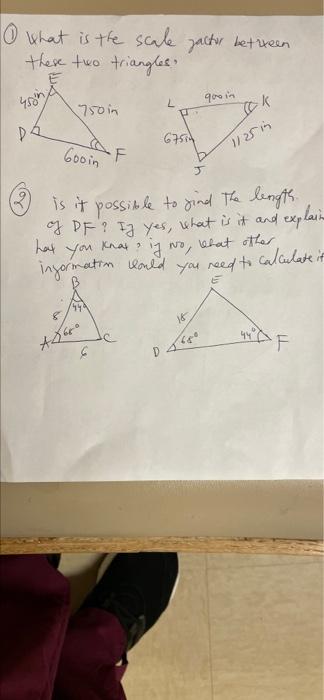 ① What is the scale factor between
these two triangles.
E
450 in
750 in
D
600 in
F
L
900 in
K
675 in
1125 in
J
② is it possible to find The length
of DF? If yes, what is it and explain
how you know? if no, what other
information would you need to calculate it
B
44°
8
A
68°
C
6
E
18
D
68°
44°
F